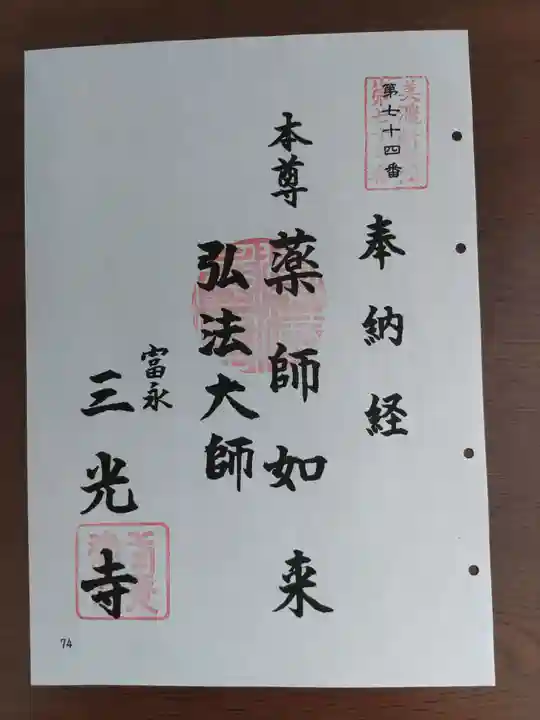 第七十四番
奉納経
本尊薬師如来
弘法大師
富永
三光寺
74